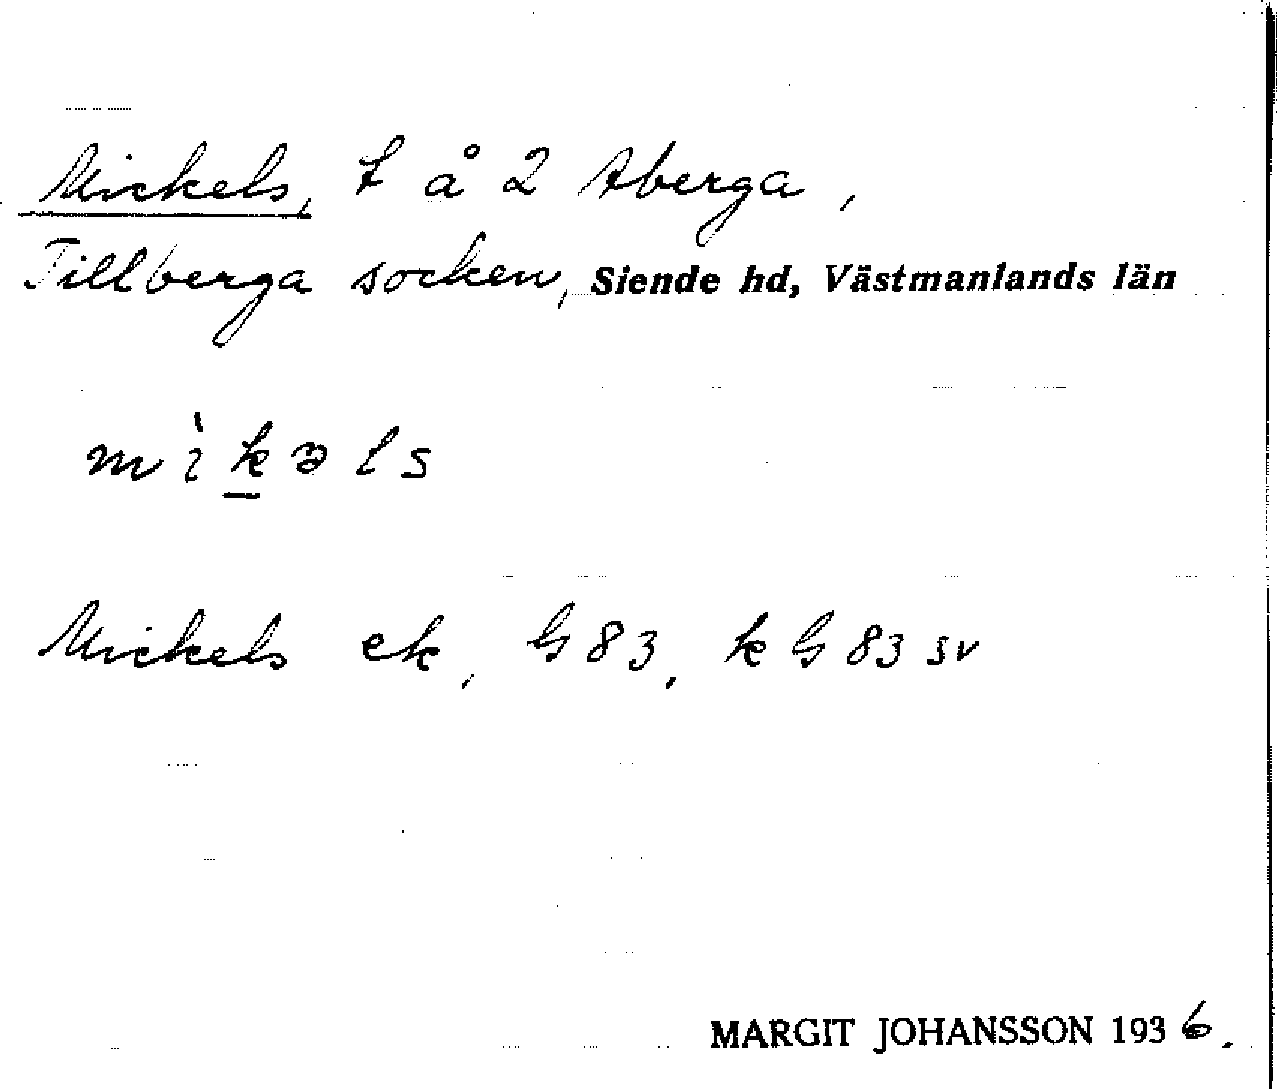 Mickels, t å 2 Aberga,
Tillberga socken, Siende hd, Västmanlands län
mìkəls
Mickels ek, G 83, k G 83 sv
MARGIT JOHANSSON 1936.